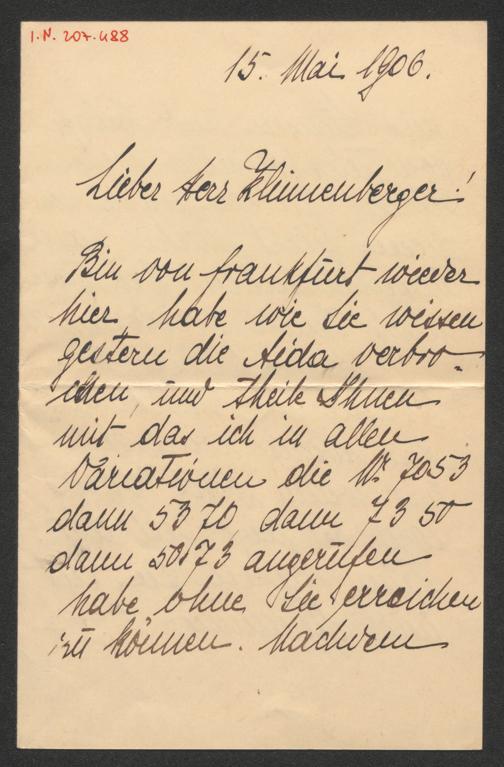 I.N. 207.488
15. Mai 1906.
Lieber Herr Klimmenberger!
Bin von Frankfurt wieder
hier, habe wie Sie wissen
gestern die Aida verbro-
chen, und theile Ihnen
mit das ich in allen
Variationen die Nr 7053
dann 5370, dann 7350
dann 5073 angerufen
habe ohne Sie erreichen
zu können. Nachdem